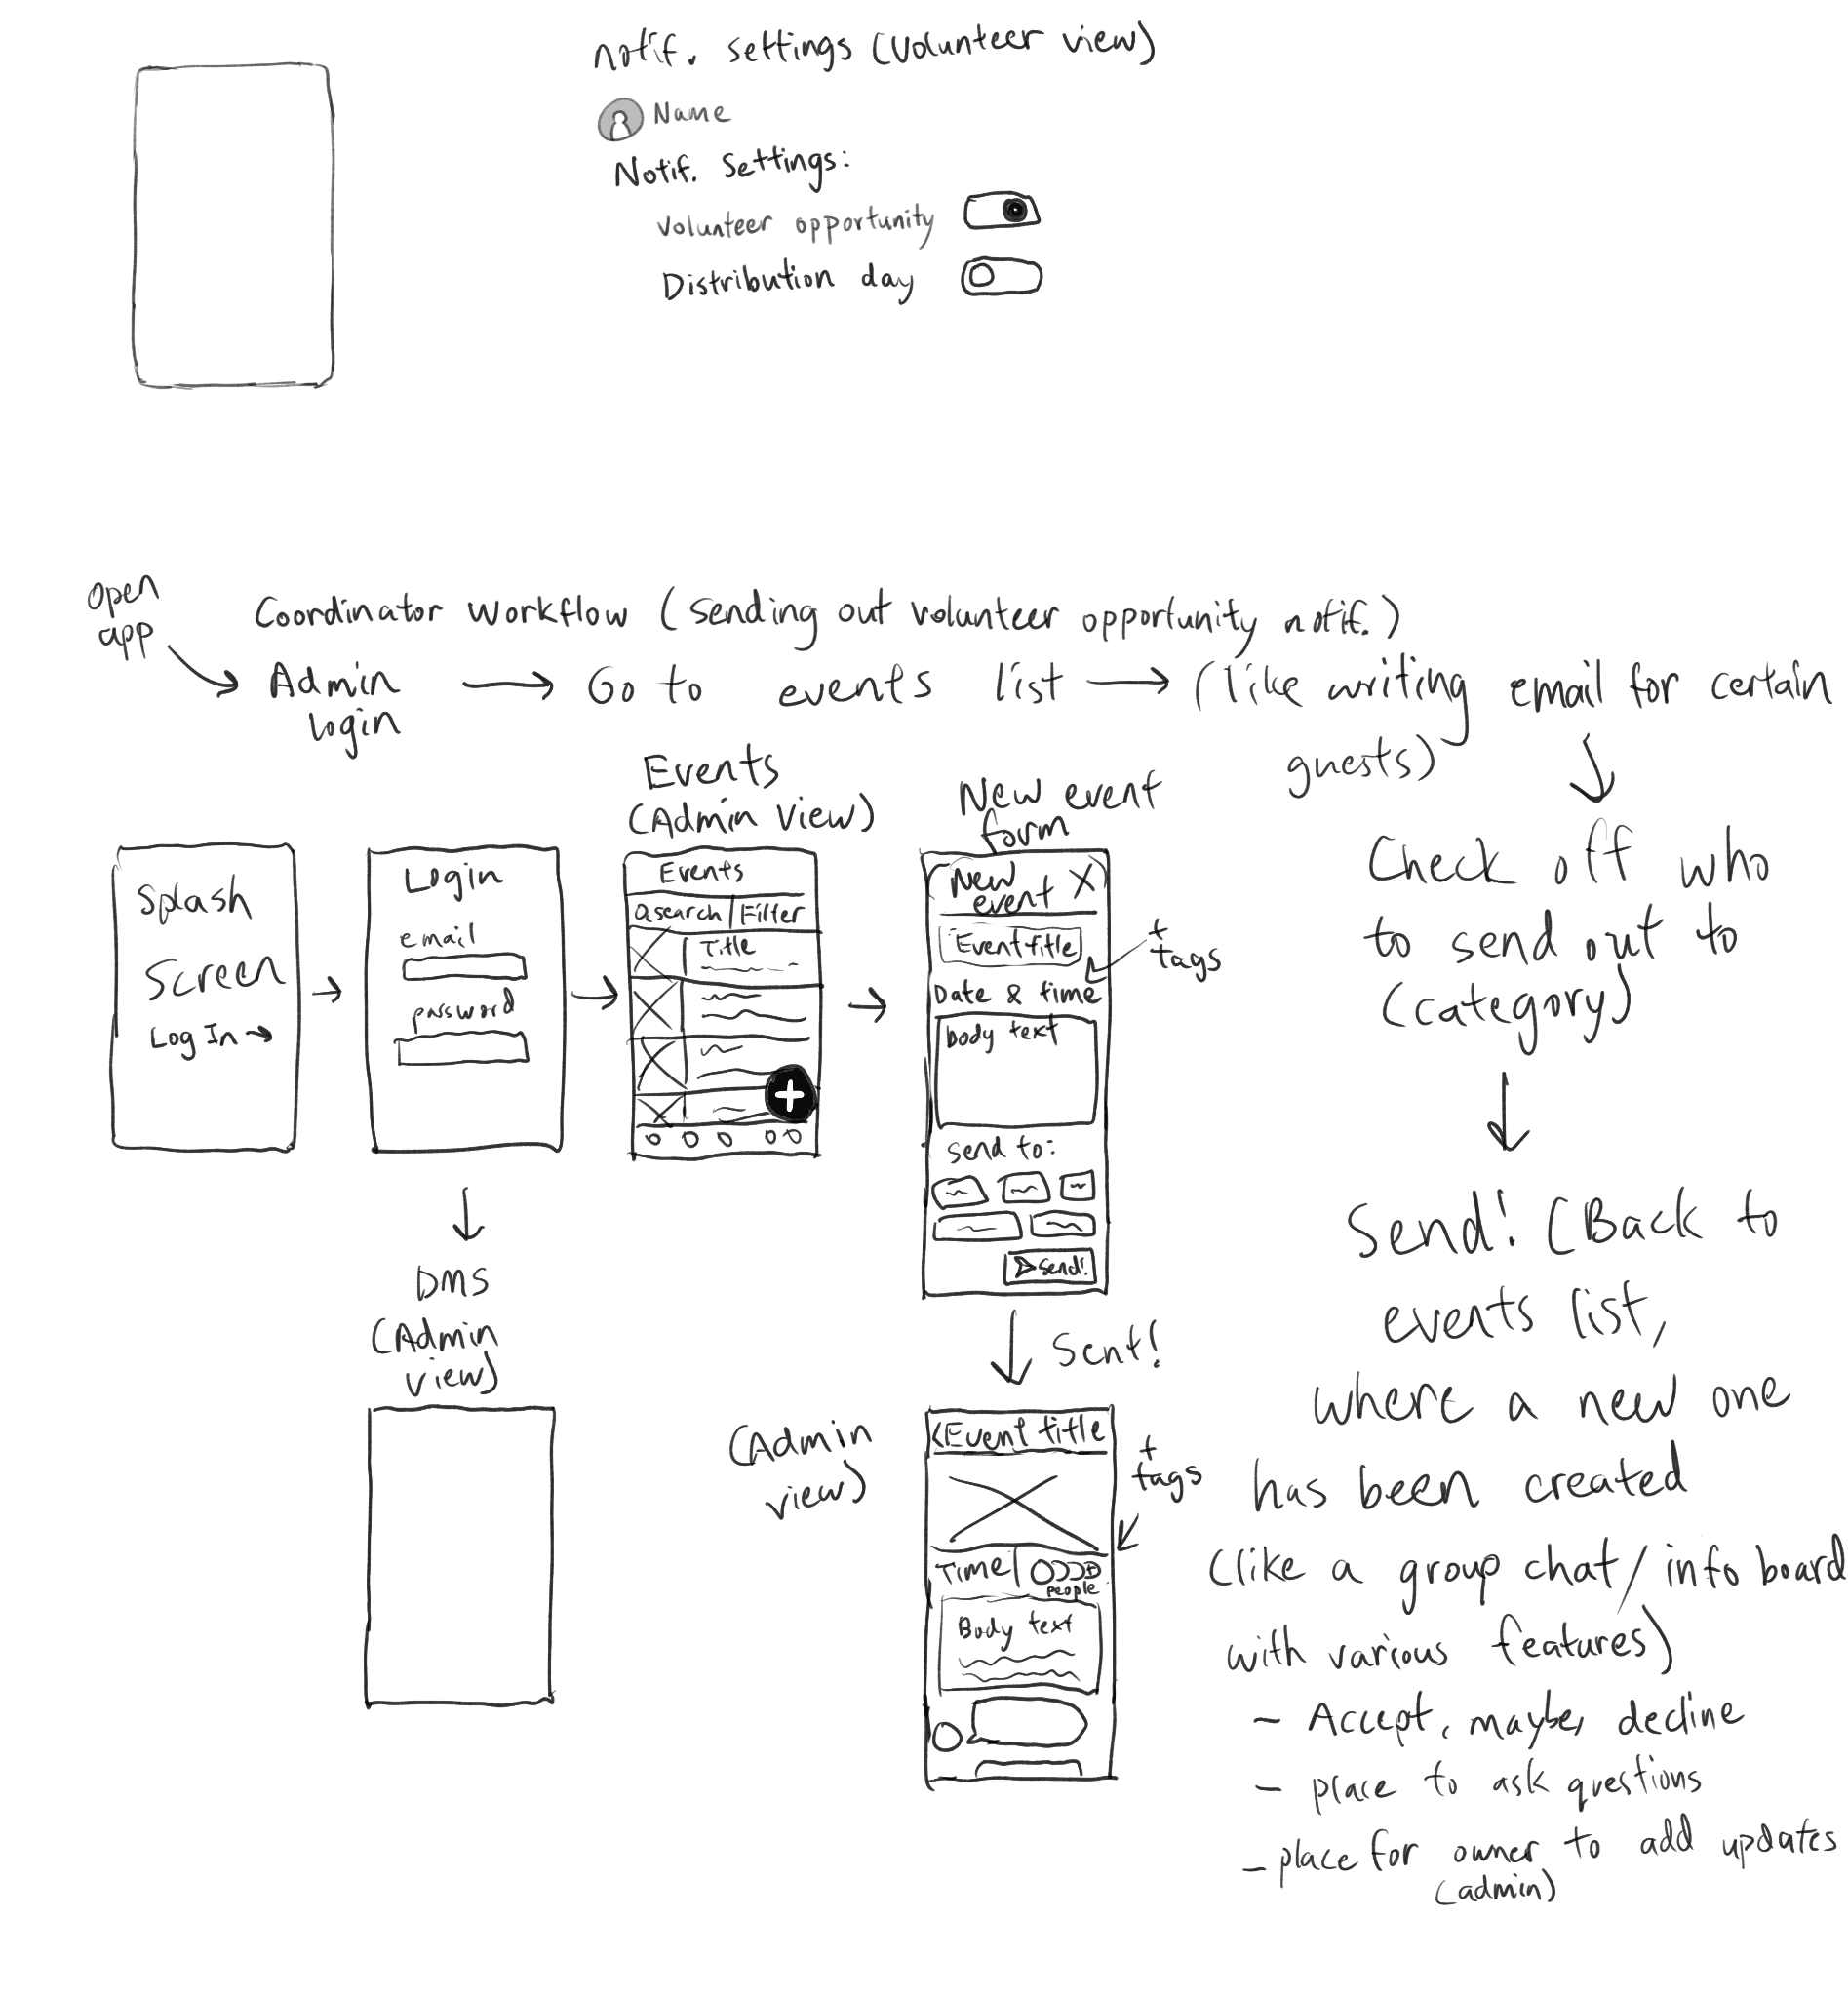 notif. settings (volunteer view)
Name
Notif. Settings:
volunteer opportunity
Distribution day
open
app
Coordinator Workflow (sending out volunteer opportunity notif.)
Admin
login
Go to events list
(like writing email for certain
guests)
Check off who
to send out to
(category)
Send! (Back to
events list,
where a new one
has been created
(like a group chat/info board
with various features)
- Accept, maybe, decline
- place to ask questions
- place for owner to add updates
(admin)
Splash
Screen
Log In →
Login
email
password
DMS
(Admin
view)
Events
(Admin View)
Events
search | Filter
Title
New event
form
New
event X
Event title
+
tags
Date & time
body text
send to:
Send!
Sent!
(Admin
view)
<Event title
+
tags
Time |
people
Body text